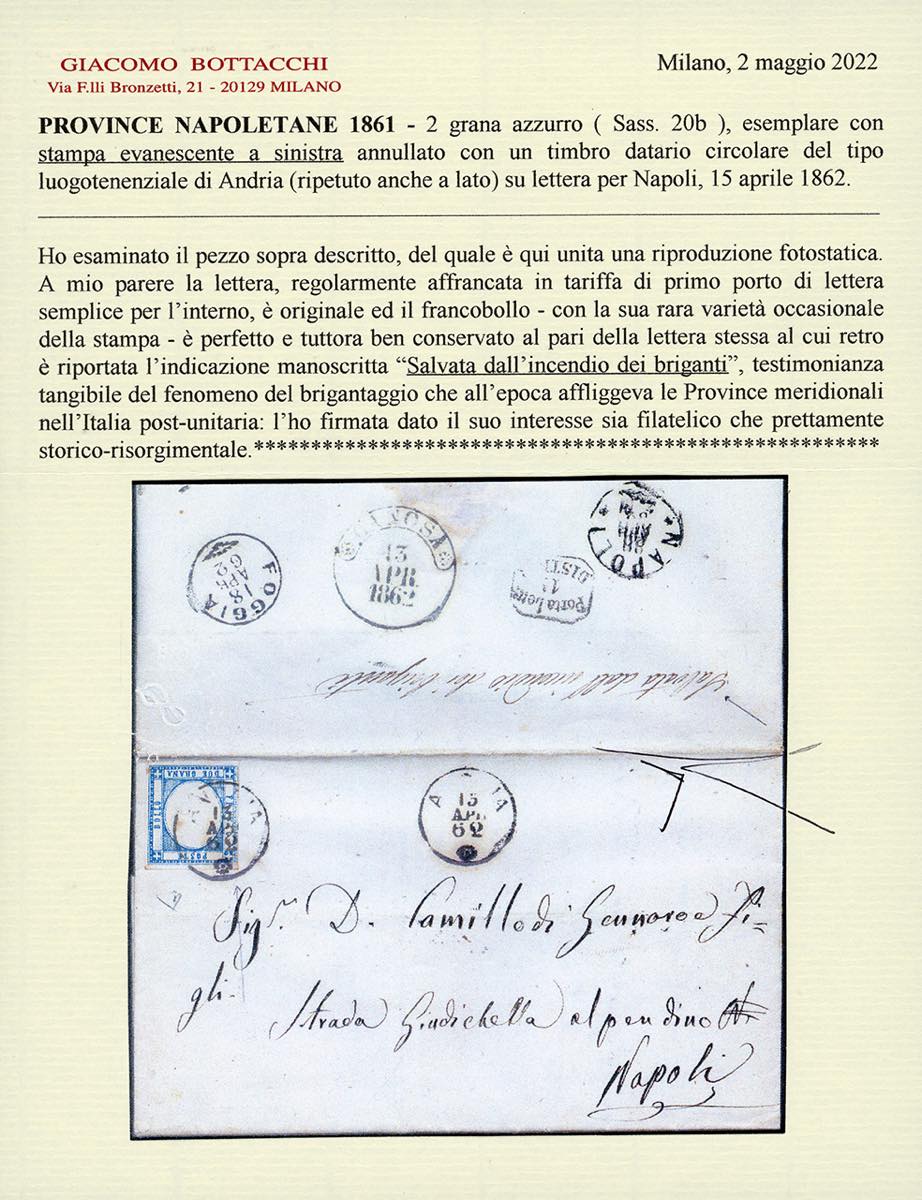 GIACOMO BOTTACCHI
Via F.lli Bronzetti, 21 - 20129 MILANO
Milano, 2 maggio 2022
PROVINCE NAPOLETANE 1861 - 2 grana azzurro ( Sass. 20b ), esemplare con
stampa evanescente a sinistra annullato con un timbro datario circolare del tipo
luogotenenziale di Andria (ripetuto anche a lato) su lettera per Napoli, 15 aprile 1862.
Ho esaminato il pezzo sopra descritto, del quale è qui unita una riproduzione fotostatica.
A mio parere la lettera, regolarmente affrancata in tariffa di primo porto di lettera
semplice per l'interno, è originale ed il francobollo - con la sua rara varietà occasionale
della stampa - è perfetto e tuttora ben conservato al pari della lettera stessa al cui retro
è riportata l'indicazione manoscritta “Salvata dall'incendio dei briganti”, testimonianza
tangibile del fenomeno del brigantaggio che all'epoca affliggeva le Province meridionali
nell'Italia post-unitaria: l'ho firmata dato il suo interesse sia filatelico che prettamente
storico-risorgimentale.************************************************************
FOGGIA
18
APR
62
13
APR.
1862
NAPOLI
Salvata dall'incendio dei briganti
DUE GRANA
BOLLO
POSTE
A IA
15
APR
62
Sigr. D. Camillo di Gennaro e Fi=
gli.
Strada Giudichella al pendino
Napoli